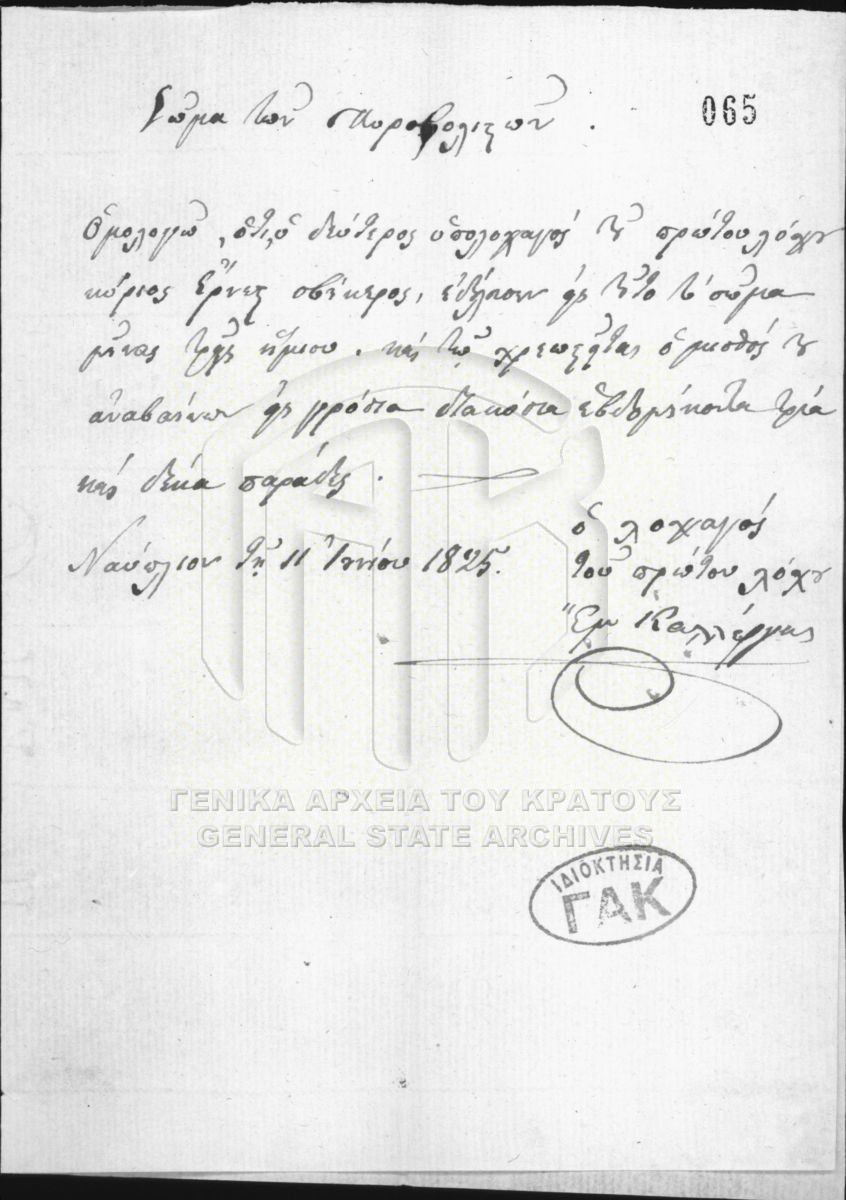 Σῶμα τῶν Πυροβολιςῶν.
065
Ὁμολογῶ, ὅτι ὁ δεύτερος ὑπολοχαγός τ꙼ πρώτου λόχου
κύριος Ἔρνες σβέκερος, ἐδούλευσεν εἰς τοῦτο τό σῶμα
μῆνας τρεῖς ἥμισυ. καί τῷ χρεωςεῖται ὁ μισθός του
ἀναβαίνων εἰς γρόσια διακόσια ἑβδομήκοντα τρία
καί δέκα παράδες.
Ναύπλιον τῇ 11 Ἰουνίου 1825.
ὁ λοχαγός
τοῦ πρώτου λόχου
Ἐμ Καλλέργης
ΓΕΝΙΚΑ ΑΡΧΕΙΑ ΤΟΥ ΚΡΑΤΟΥΣ
GENERAL STATE ARCHIVES
ΙΔΙΟΚΤΗΣΙΑ
ΓΑΚ